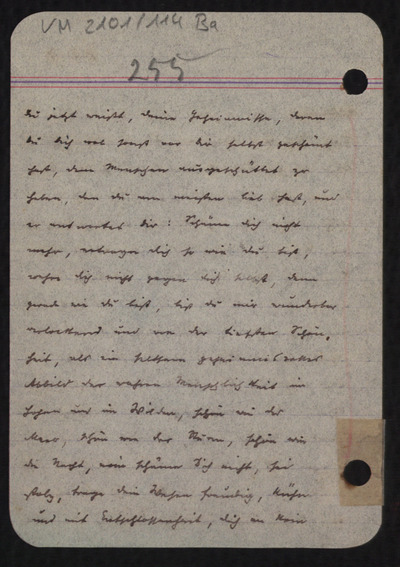 VM 2101/114 Ba
255
du jetzt weißt, deine Geheimnisse, deren
du dich vor dir selbst
hast, dem Menschen ausgeschüttet zu
haben, den du am meisten lieb hast, und
er antwortet dir: Schäme dich nicht
mehr, dich so wie du bist,
dich nicht gegen dich selbst, denn
gerade wie du bist, bist du mir wunderbar
verlockend und von der tiefsten Schön,
heit, als ein seltsam geheimnisvolles
Abbild der wahren Menschlichkeit im
Hohen und im Wilden, schön wie das
Meer, schön wie der Sturm, schön wie
die Nacht, nein schäme dich nicht, sei
stolz, trage dein Wesen freudig, kühn
und mit Entschlossenheit, dich an kein